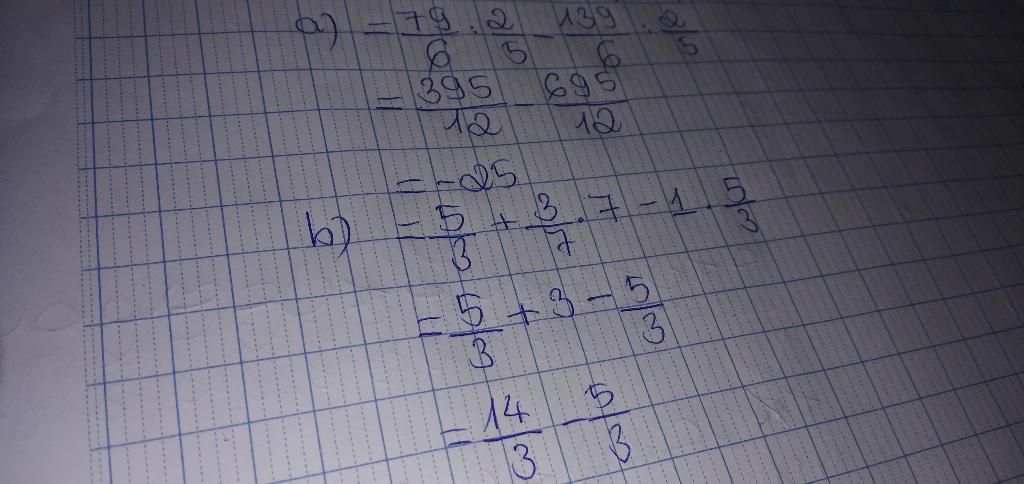 a) = 79/6 : 2/5 - 139/6 : 2/5
= 395/12 - 695/12
= -25
b) = 5/3 + 3/7 . 7 - 1 . 5/3
= 5/3 + 3 - 5/3
= 14/3 - 5/3